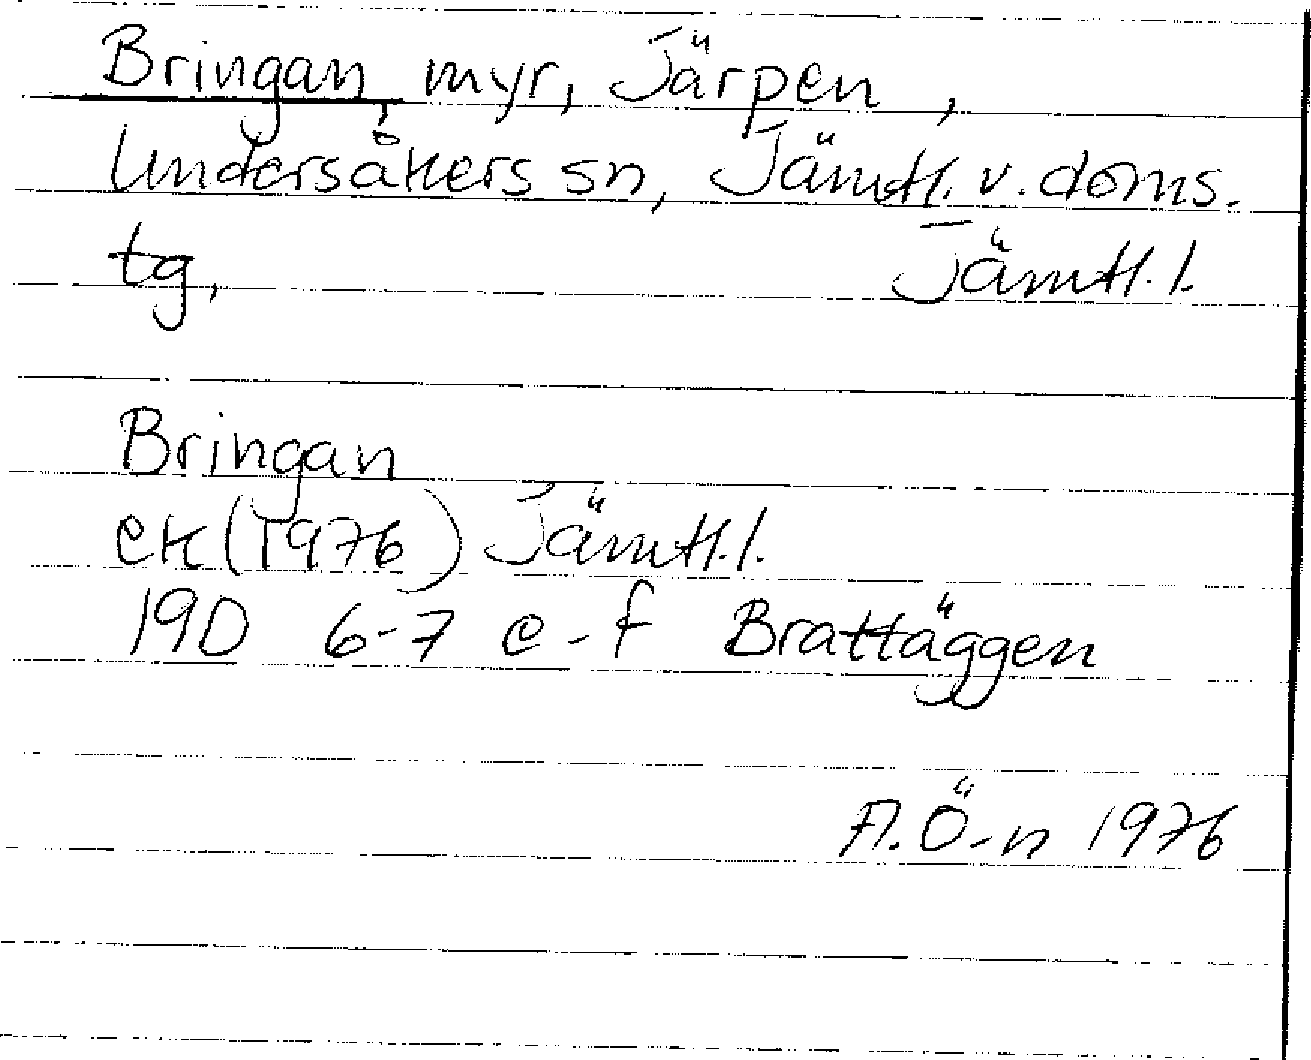 Bringan, myr, Järpen,
Undersåkers sn, Jämtl. v. doms.
tg, Jämtl. l.
Bringan
ek (1976) Jämtl. l.
19D 6-7 e-f Brattäggen
A. Ö-n 1976